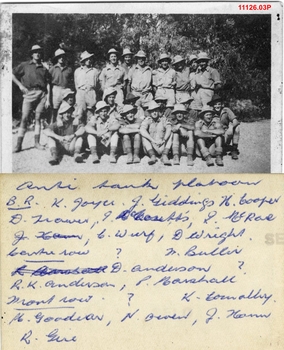 11126.03P
Anti tank platoon
B.R. K. Joyce. J. Giddings H. Cooper
D. Traver, J. , L. McRae
J. , C. Wurf, D. Wright
Centre row ? N. Butler
D. Anderson ?
R.K. Anderson, P. Marshall
Front row. ? K. Connolly
H. Goodear, N. Owen, J. Hann
R. Gire
SE